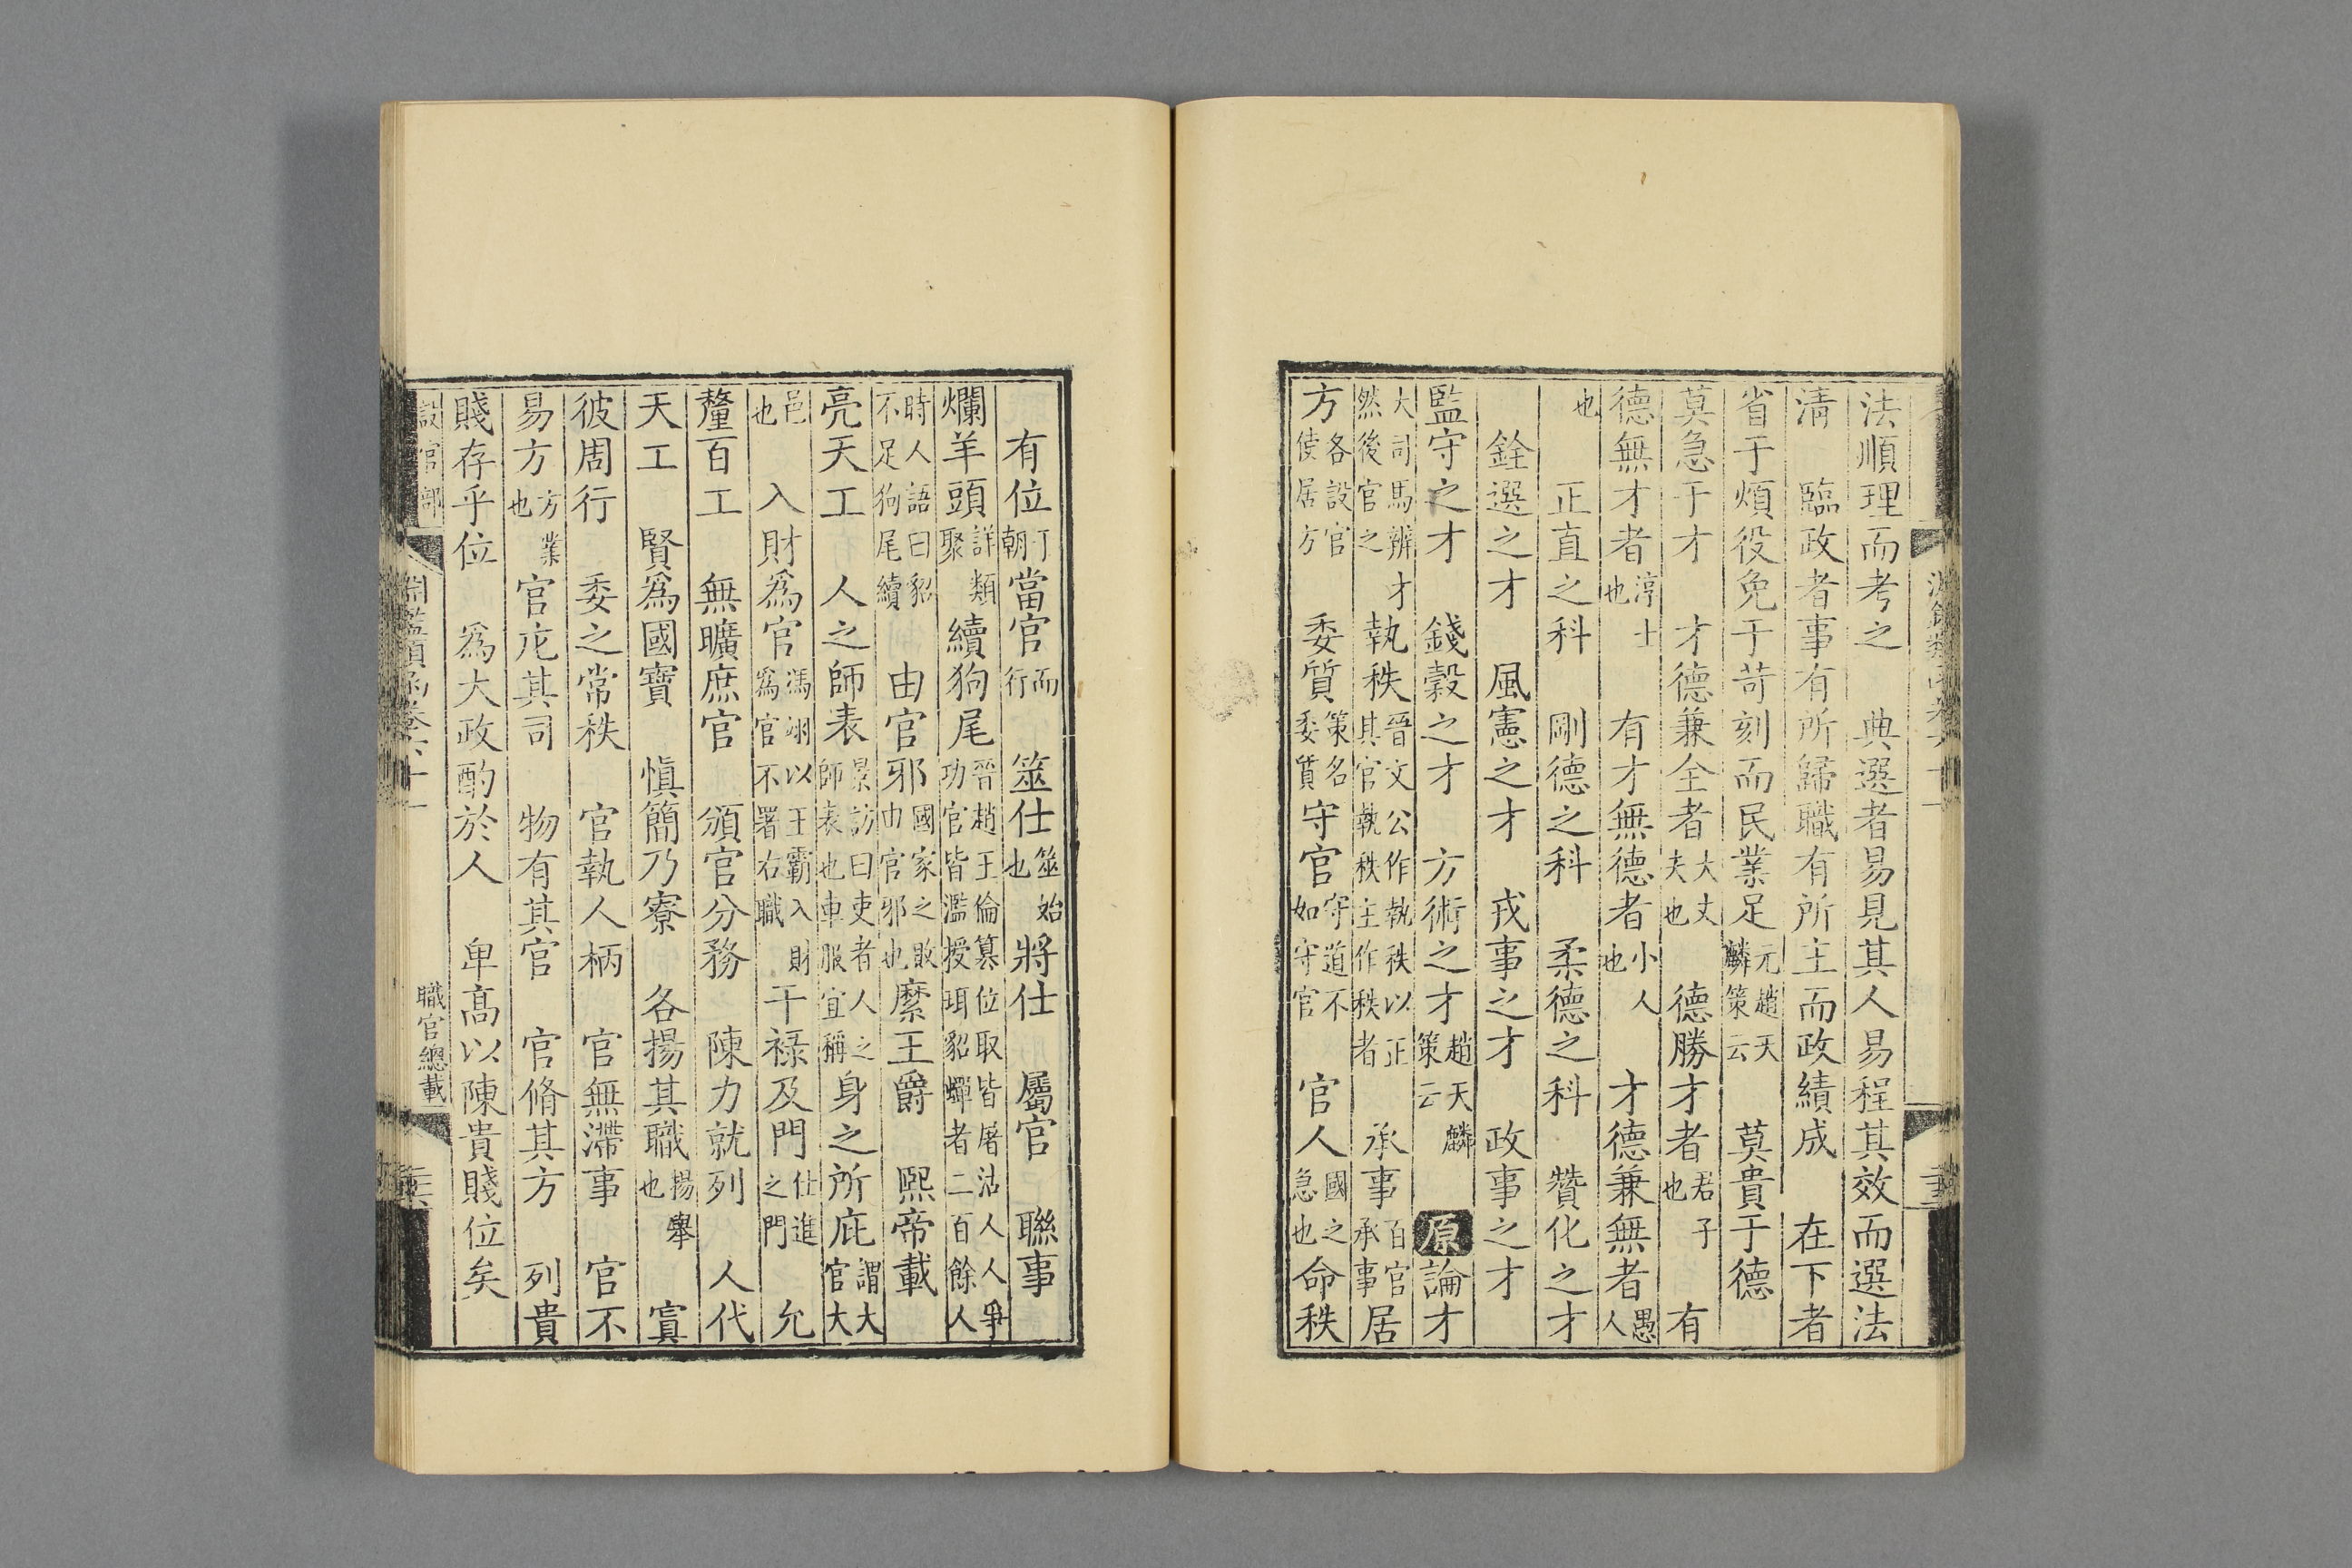 法順理而考之　典選者易見其人易程其效而選法
清　臨政者事有所歸職有所主而政績成　在下者
省于煩役免于苛刻而民業足元趙天麟策云　莫貴于德
莫急于才　才德兼全者大丈夫也　德勝才者君子也　有
德無才者淳士也　有才無德者小人也　才德兼無者愚人
也　正直之科　剛德之科　柔德之科　贊化之才
銓選之才　風憲之才　戎事之才　政事之才
監守之才　錢穀之才　方術之才趙天麟策云　原論才
大司馬辨才然後官之　執秩晉文公作執秩以正其官執秩主作秩者　承事百官承事　居
方各設官使居方　委質策名委質　守官守道不如守官　官人國之急也　命秩
有位　朝丁當官而行　筮仕筮始也　將仕　屬官　聯事
爛羊頭詳類聚　續狗尾晉趙王倫篡位取皆屠沽人人爭功官皆濫授珥貂蟬者二百餘人
時人語曰貂不足狗尾續　由官邪國家之敗由官邪也　縻王爵　熙帝載
亮天工　人之師表景訪曰吏者人之師表也車服宜稱　身之所庇謂大官大
邑也　入財爲官馮翊以王霸入財爲官不署右職　干祿及門仕進之門　允
釐百工　無曠庶官　頒官分務　陳力就列　人代
天工　賢爲國寶　愼簡乃寮　各揚其職揚舉也　寘
彼周行　委之常秩　官執人柄　官無滯事　官不
易方方業也　官庀其司　物有其官　官脩其方　列貴
賤存乎位　爲大政酌於人　卑高以陳貴賤位矣
設官部　淵鑑類函卷六十一　職官總載